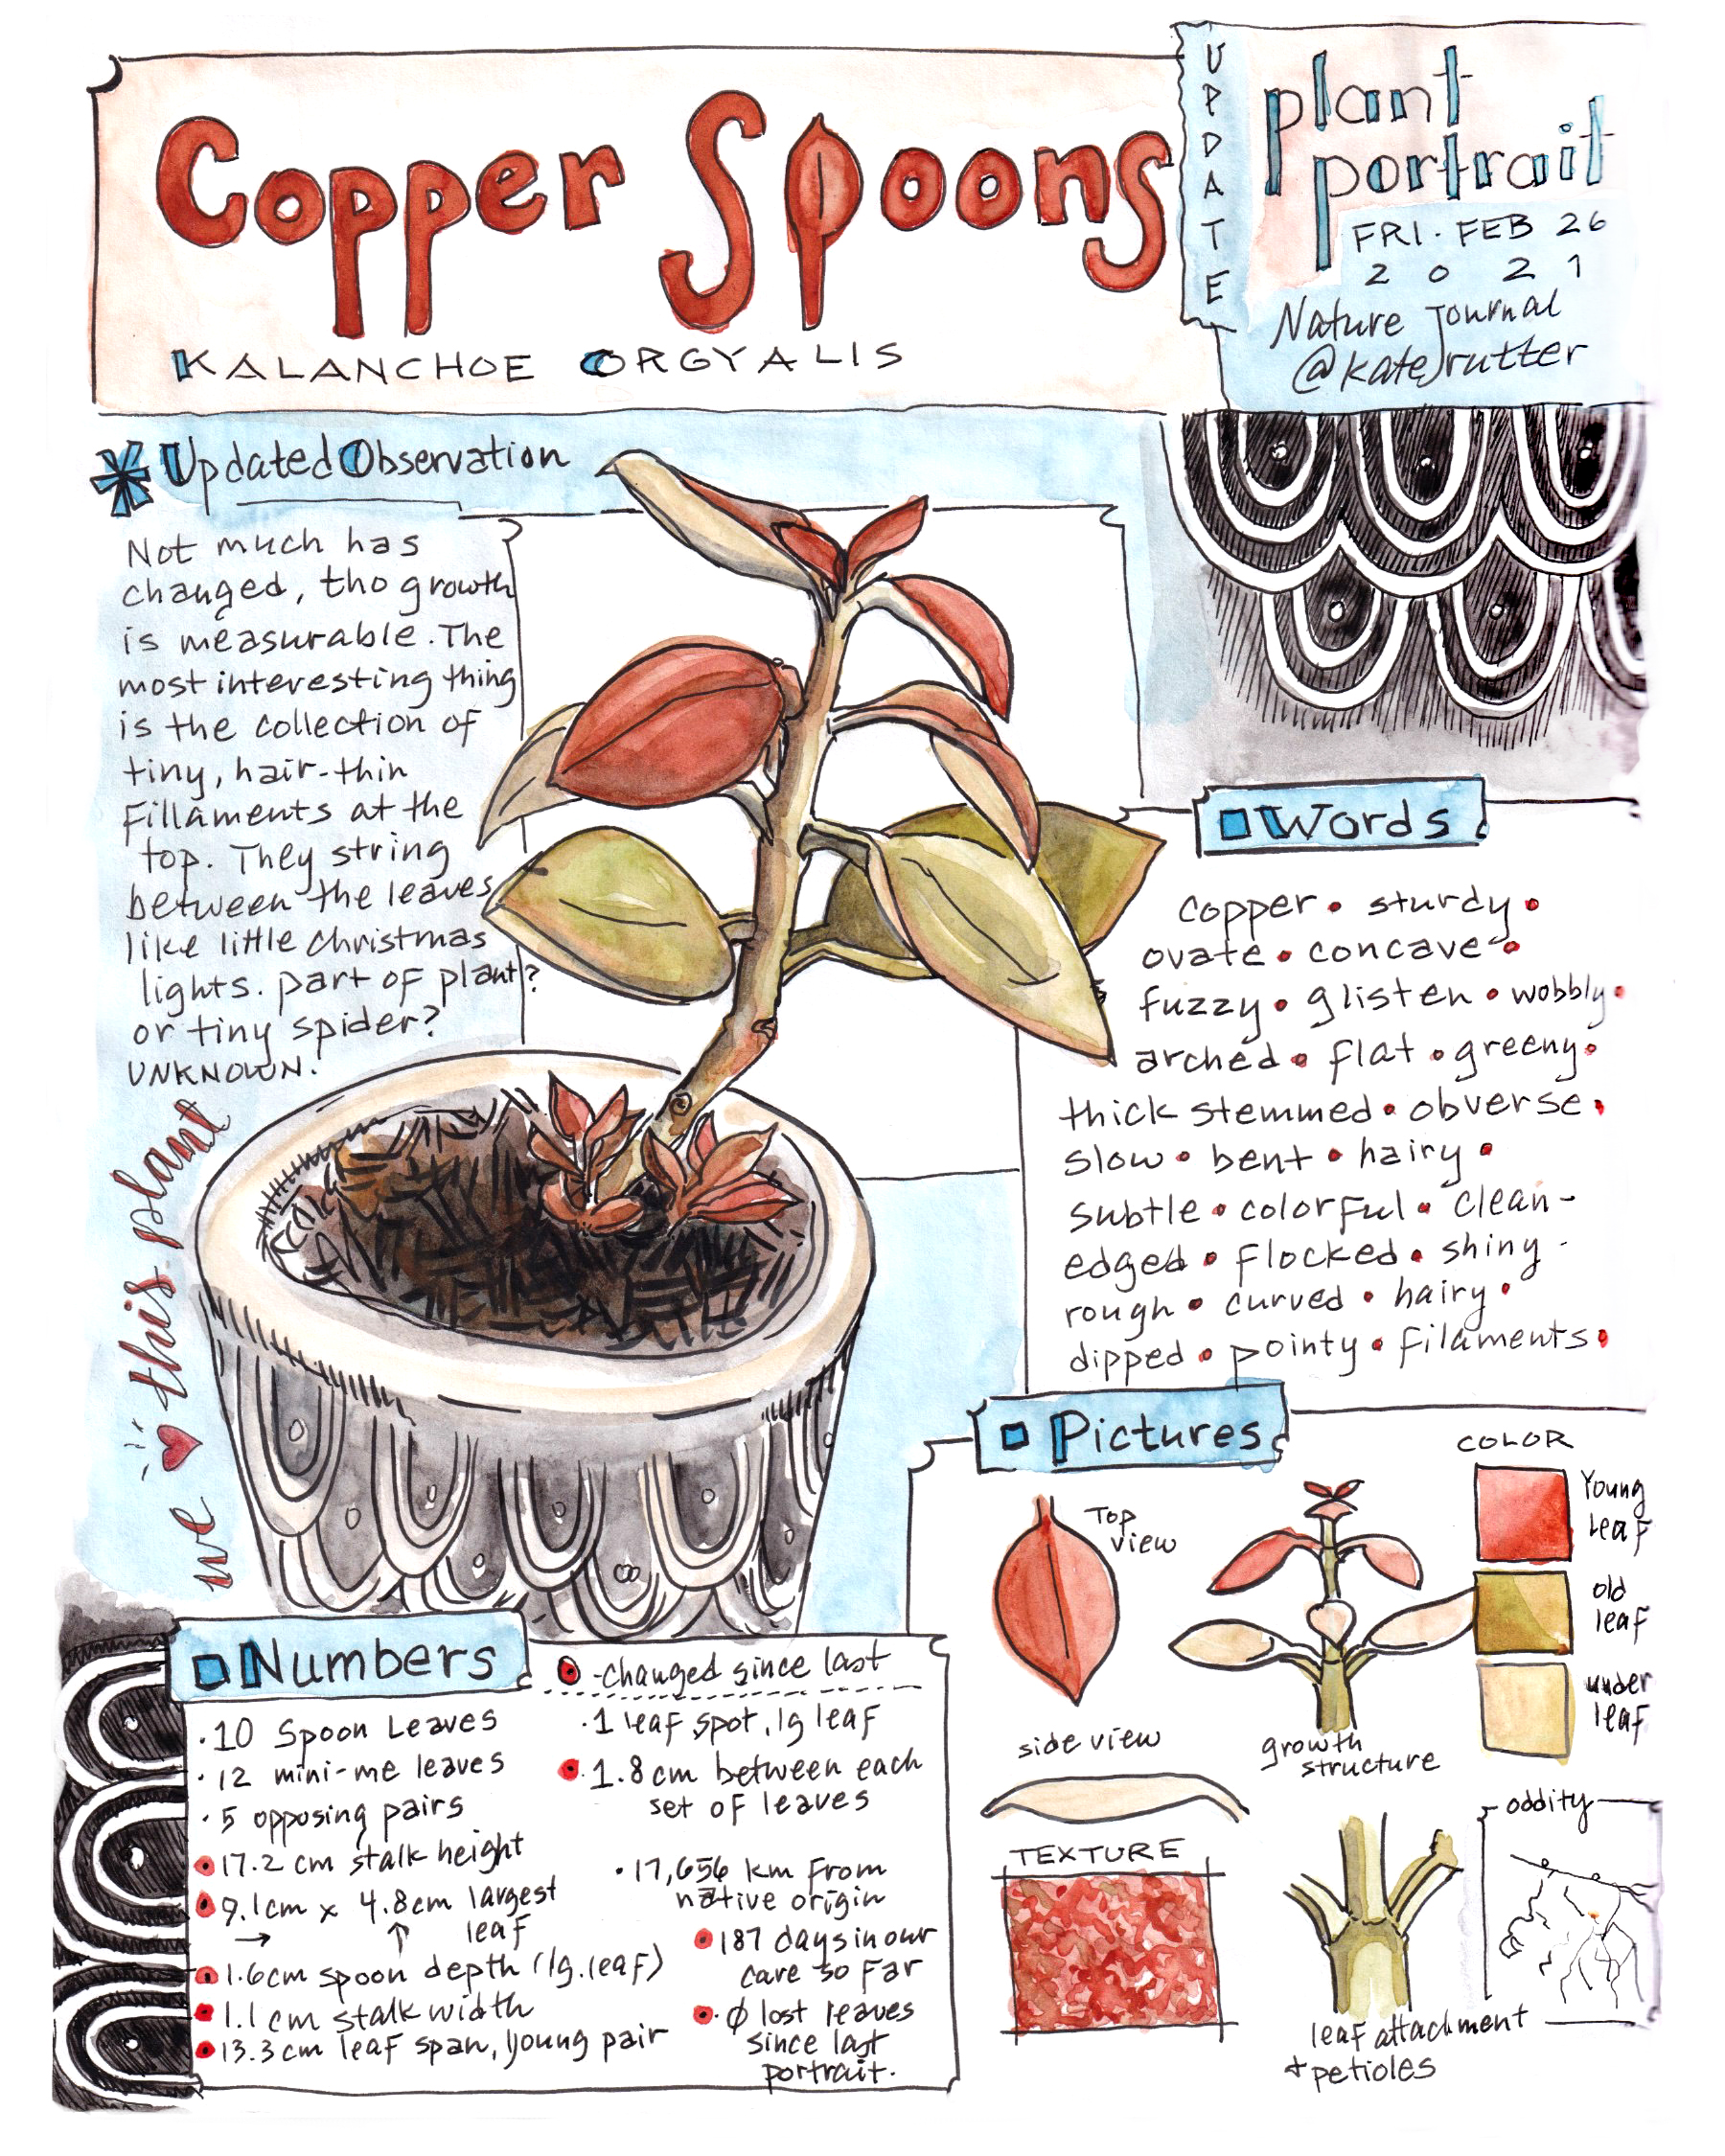 Copper Spoons
KALANCHOE ORGYALIS
UPDATE
plant
portrait
FRI. FEB 26
2021
Nature Journal
@katerutter
* Updated Observation
Not much has
changed, tho growth
is measurable. The
most interesting thing
is the collection of
tiny, hair-thin
fillaments at the
top. They string
between the leaves
like little christmas
lights. part of plant?
or tiny spider?
UNKNOWN.
we ♥ this plant
Words
copper • sturdy •
ovate • concave •
fuzzy • glisten • wobbly •
arched • flat • greeny •
thick stemmed • obverse •
slow • bent • hairy •
subtle • colorful • clean-
edged • flocked • shiny -
rough • curved • hairy •
dipped • pointy • filaments •
Pictures
Top
view
side view
TEXTURE
growth
structure
COLOR
Young
leaf
old
leaf
under
leaf
oddity
leaf attachment
+ petioles
Numbers
- changed since last
• 10 Spoon Leaves
• 12 mini-me leaves
• 5 opposing pairs
• 17.2 cm stalk height
• 9.1cm x 4.8cm largest
→ ↑ leaf
• 1.6cm spoon depth (lg. leaf)
• 1.1 cm stalk width
• 13.3 cm leaf span, young pair
• 1 leaf spot, lg leaf
• 1.8 cm between each
set of leaves
• 17,656 km from
native origin
• 187 days in our
care so far
• Ø lost leaves
since last
portrait.